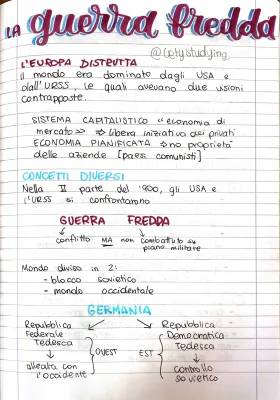 LA guerra fredda
@cotystudying
L'EUROPA DISTRUTTA
Il mondo era dominato dagli USA e
dall'URSS, le quali avevano due visioni
contrapposte.
SISTEMA CAPITALISTICO "economia di
mercato" => libera iniziativa dei privati
ECONOMIA PIANIFICATA => no proprietà
delle aziende [paesi comunisti]
CONCETTI DIVERSI
Nella II parte del '900, gli USA e
l'URSS si confrontarono
GUERRA FREDDA
conflitto MA non combattuto su
piano militare
Mondo diviso in 2:
- blocco sovietico
- mondo occidentale
GERMANIA
Repubblica
Federale
Tedesca
OVEST
alleata con
l'occidente
Repubblica
Democratica
Tedesca
EST
controllo
sovietico